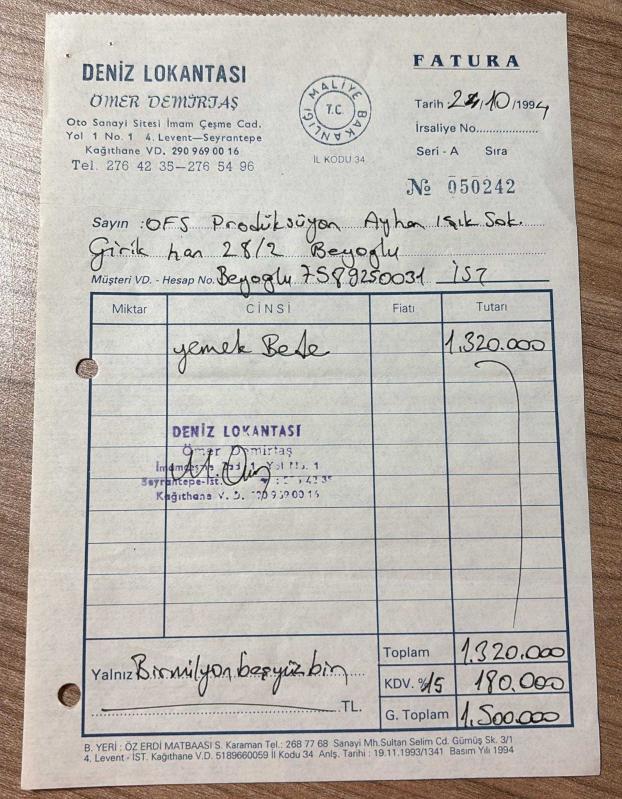 DENİZ LOKANTASI
ÖMER DEMİRTAŞ
Oto Sanayi Sitesi İmam Çeşme Cad.
Yol 1 No. 1 4. Levent—Seyrantepe
Kağıthane VD. 290 969 00 16
Tel. 276 42 35—276 54 96
MALİYE BAKANLIĞI
T.C.
İL KODU 34
FATURA
Tarih 24/10/1994
İrsaliye No.
Seri - A Sıra
№ 050242
Sayın : OFS Prodüksüyon Ayhan Işık Sok.
Girik han 28/2 Beyoglu
Müşteri VD. - Hesap No. Beyoglu 7589250031 İST
Miktar CİNSİ Fiatı Tutarı
yemek Bede 1.320.000
DENİZ LOKANTASI
Ömer Demirtaş
Seyrantepe-İst.
Kağıthane V. D. 290 969 00 16
Toplam 1.320.000
Yalnız Birmilyonbeşyüzbin
KDV. %15 180.000
TL.
G. Toplam 1.500.000
B. YERİ : ÖZ ERDİ MATBAASI S. Karaman Tel.: 268 77 68 Sanayi Mh.Sultan Selim Cd. Gümüş Sk. 3/1
4. Levent - İST. Kağıthane V.D. 5189660059 İl Kodu 34 Anlş. Tarihi : 19.11.1993/1341 Basım Yılı 1994